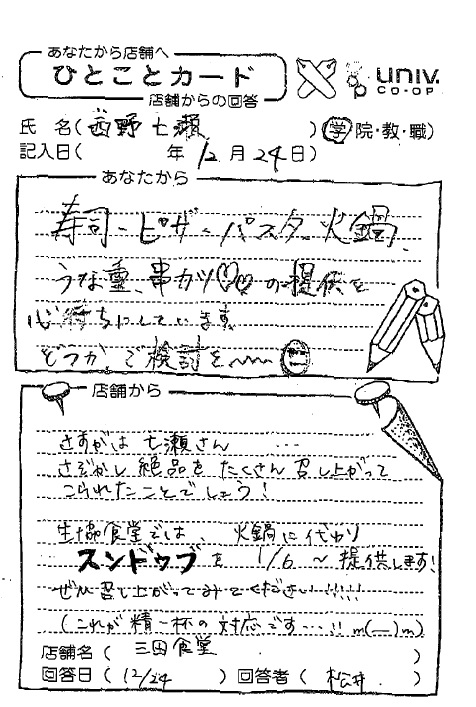 あなたから店舗へ
ひとことカード
店舗からの回答
univ.
CO-OP
氏 名(西野七瀬 )(学)院・教・職)
記入日( 年 12月24日)
あなたから
寿司、ピザ、パスタ、火鍋、
うな重、串カツ♡♡の提供を
心待ちにしています。
どうか、ご検討を〜〜
店舗から
さすがは七瀬さん …
さぞかし絶品をたくさん召し上がって
こられたことでしょう!
生協食堂では、火鍋に代わり
スンドゥブを 1/6 〜 提供します!
ぜひ召し上がってみてください!!!!!
(これが精一杯の対応です…!! m(__)m)
店舗名( 三田食堂 )
回答日(12/24 )回答者( 松井 )